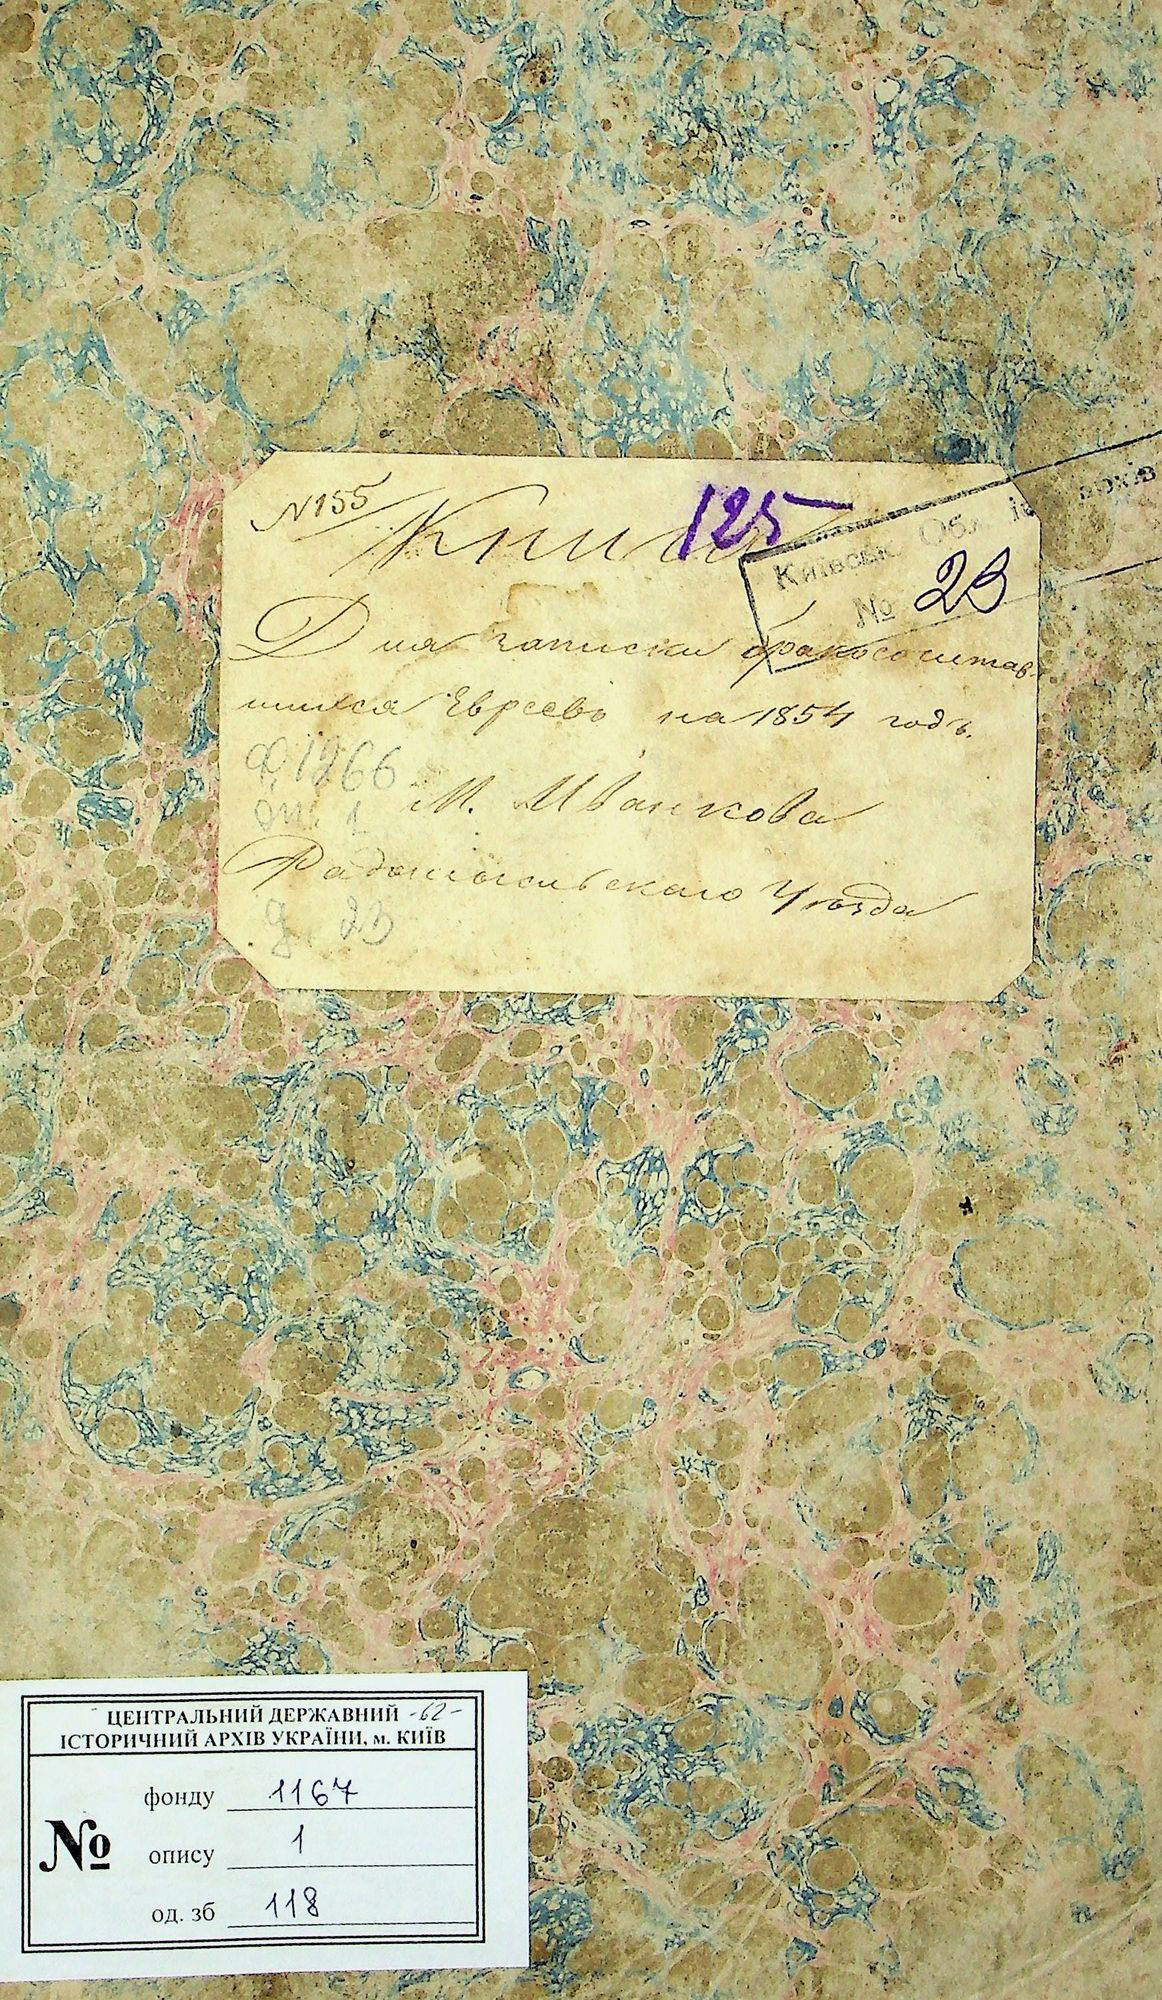 №155
Книга
125
Київськ Обл
№ 23
Для записки бракосочитав-
шихся Евреевъ на 1854 годъ.
ф 1266
оп. 1
М. Иванкова
Радомысльскаго Уѣзда
д. 23
ЦЕНТРАЛЬНИЙ ДЕРЖАВНИЙ -62-
ІСТОРИЧНИЙ АРХІВ УКРАЇНИ, м. КИЇВ
№
фонду 1167
опису 1
од. зб 118